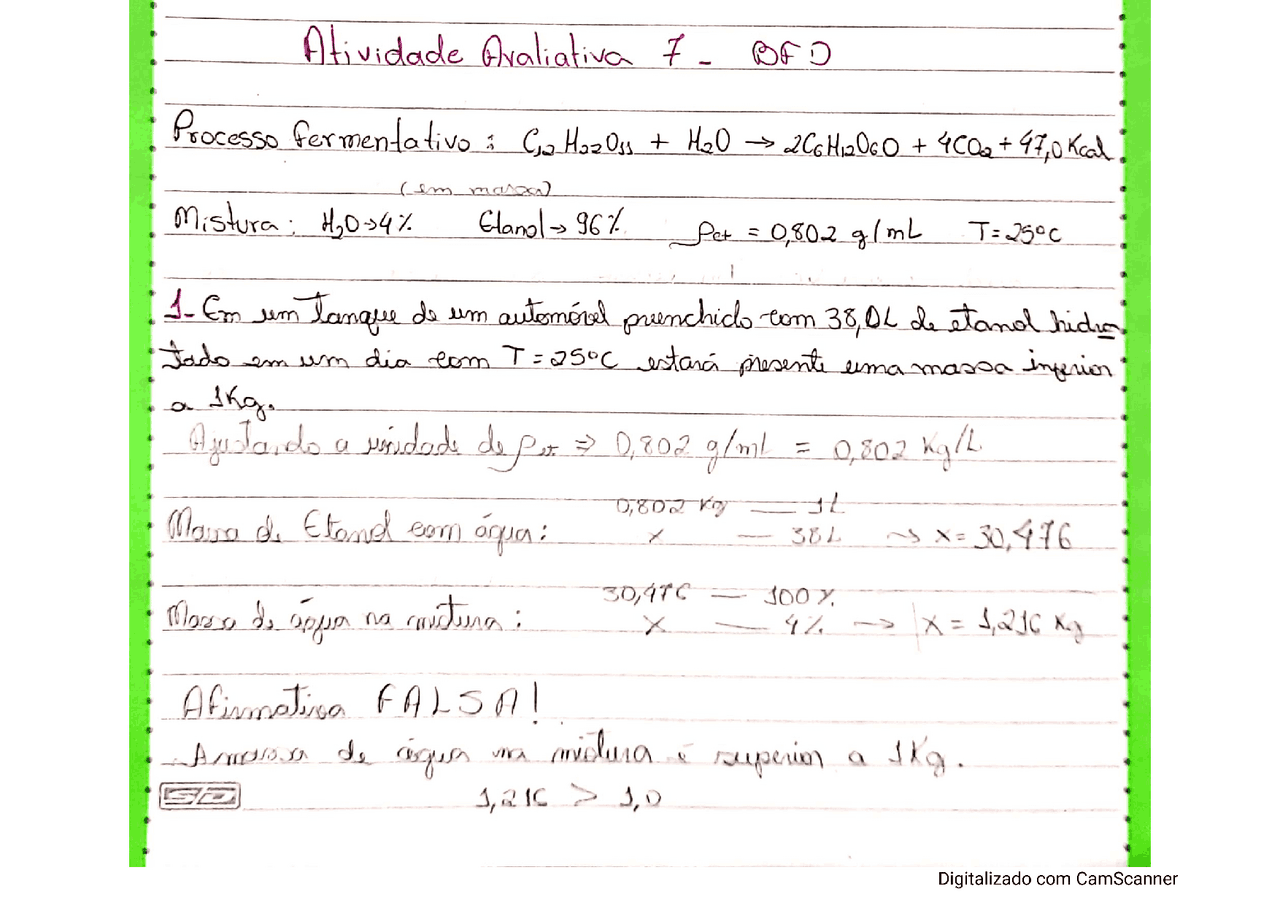 Atividade Avaliativa 7 - BFD
Processo fermentativo : C12 H22O11 + H2O → 2C6H12O6O + 4CO2 + 47,0 Kcal
(em massa)
Mistura : H2O → 4% Etanol → 96% ρet = 0,802 g/mL T=25°C
1- Em um Tanque de um automóvel preenchido com 38,0L de etanol hidra
tado em um dia com T = 25°C estará presente uma massa inferior
a 1Kg.
Ajustando a unidade de ρet ⇒ 0,802 g/mL = 0,802 Kg/L
0,802 Kg — 1L
Massa de Etanol com água : x — 38L → x = 30,476
30,476 — 100%
Massa de água na mistura : x — 4% → x = 1,216 Kg
Afirmativa FALSA!
A massa de água na mistura é superior a 1Kg.
1,216 > 1,0
SD
Digitalizado com CamScanner